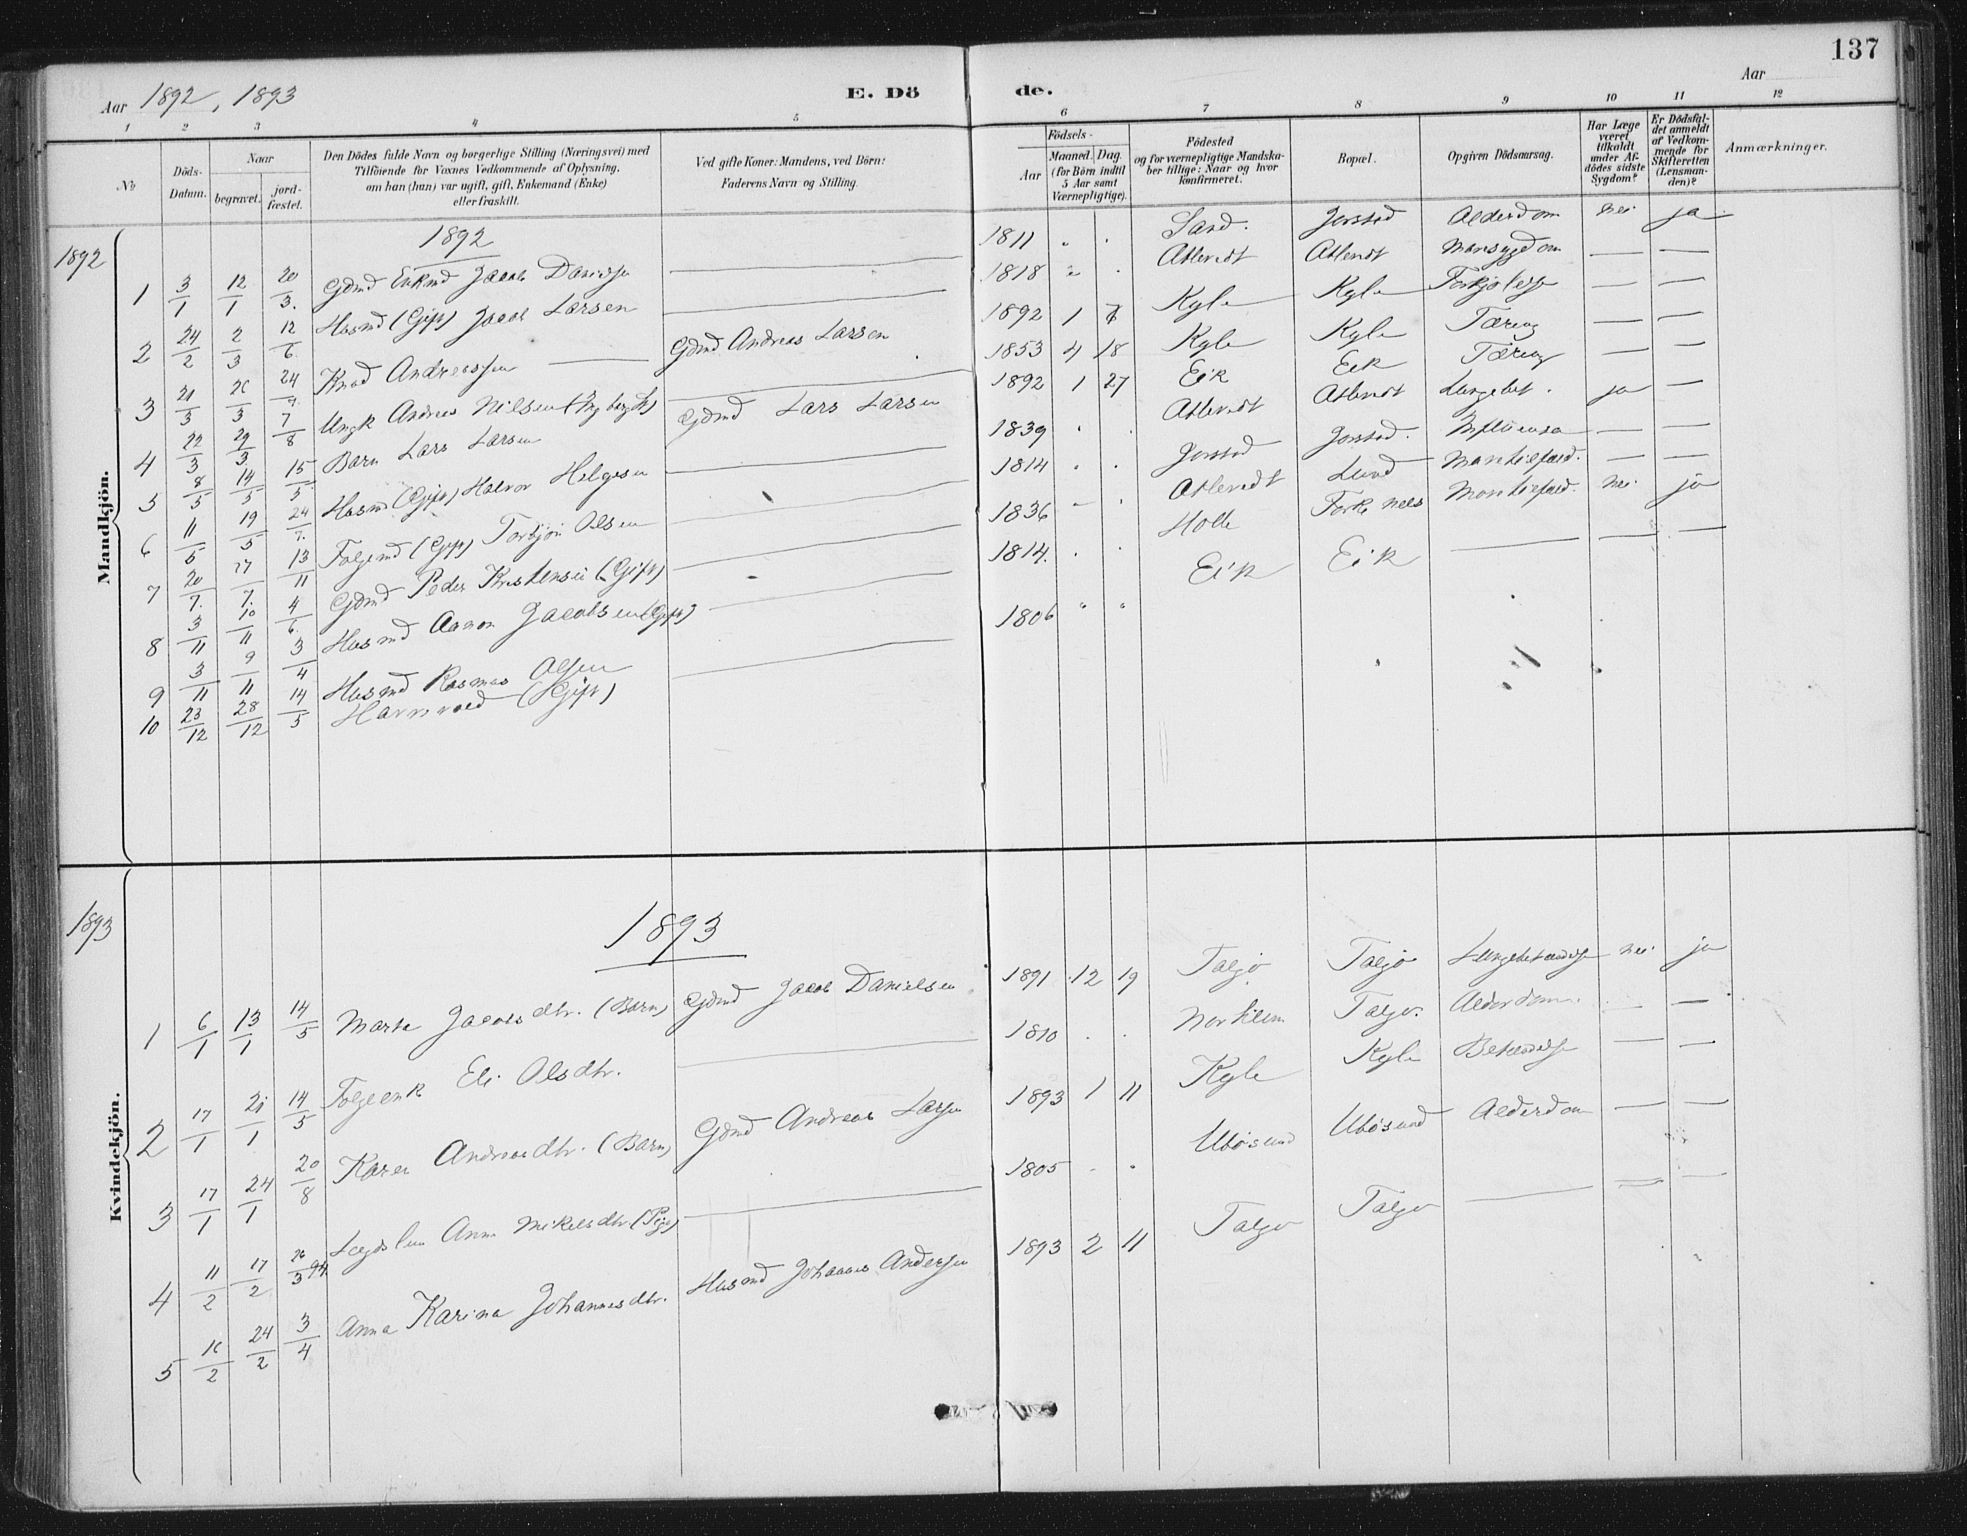 137
Aar 1892, 1893
E. Dö
de.
Aar
1 2 3 4 5 6 7 8 9 10 11 12
No
Döds-Datum.
Naar
begravet.
jord-fæstet.
Den Dödes fulde Navn og borgerlige Stilling (Næringsvei) med
Tilföiende for Voxnes Vedkommende af Oplysning,
om han (hun) var ugift, gift, Enkemand (Enke)
eller fraskilt.
Ved gifte Koner: Mandens, ved Börn:
Faderens Navn og Stilling.
Födsels-
Aar
Maaned. Dag.
(for Börn indtil
5 Aar samt
Værnepligtige).
Födested
og for værnepligtige Mandska-
ber tillige: Naar og hvor
konfirmeret.
Bopæl.
Opgiven Dödsaarsag.
Har Læge
været
tilkaldt
under Af-
dödes sidste
Sygdom?
Er Dödsfal-
det anmeldt
af Vedkom-
mende for
Skifteretten
(Lensman-
den)?
Anmærkninger.
Mandkjön.
1892
1892
1 3/1 12/1 20/3. Gdmd Enkmd Jacob Danielsen — 1811 " . Sand. Jorstad Alderdom nei ja
2 24/2 2/3 12/6. Husmd (Gift) Jacob Larsen — 1818 " . Atlevedt Atlevedt — —
3 21/3 26/3 24/7. Knud Andreassen — Gdmd Andreas Larsen 1892 1 Kyle Kyle — —
4 22/3 29/3. 7/8 Ungk Andreas Nilsen — 1853 4 18 Kyle Kyle Tæring — —
5 8/5 14/5 15/5. Barn Lars Larsen Gdmd Lars Larsen 1892 1 27 Eik Eik Tæring — —
6 11/5 19/5 24/7. Husmd (Gift) Halvor Helgesen — 1839 . . Atlevedt Atlevedt Lungebet. ja —
7 20/7. 27/7. 13/11 Folgemd (Gift) Torbjön Olsen — 1814 . . Jorstad Jorstad. Influensa — —
8 3/11 10/11 4/6. Gdmd Peder Kristensen (Gift) — 1836 " . Atlevedt Lund — —
9 3/11 9/11 3/4 Husmd Aanon Jacobsen (Gift) — 1814. . . Holle nei. ja
10 23/12 28/12 14/5 Husmd Rasmus Olsen — 1806 " " Eik Eik — — —
(Gift)
Kvindekjön.
1893
1893
1 6/1 13/1 14/5 Marta Jacobsdtr. (Barn) Gdmd Jacob Danielsen 1891 12 19 Talgö Talgö nei. ja
2 17/1 21/1 14/5 Folgeenk Eli Olsdtr. — 1810 . . Talgö. Alderdom — —
3 17/1 24/1 20/8 Karen Andreasdtr. (Barn) Gdmd Andreas Larsen 1893 1 11 Kyle Kyle — —
4 11/2 17/2 26/3 94. Anna Mikelsdtr (Pige) — 1805 . . Ubösund Ubösund Alderdom — —
5 16/2 24/2 3/4 Anna Karina Johannesdtr. Husmd Johannes Andersen 1893 2 11 Talgö Talgö — — —